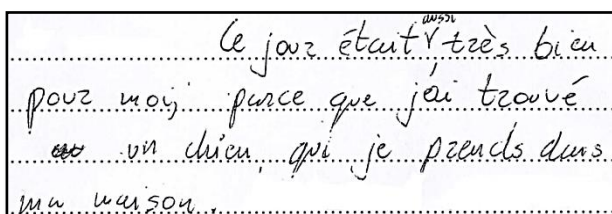 Ce jour était aussi très bien
pour moi, parce que j'ai trouvé
un chien qui je prends dans
ma maison.